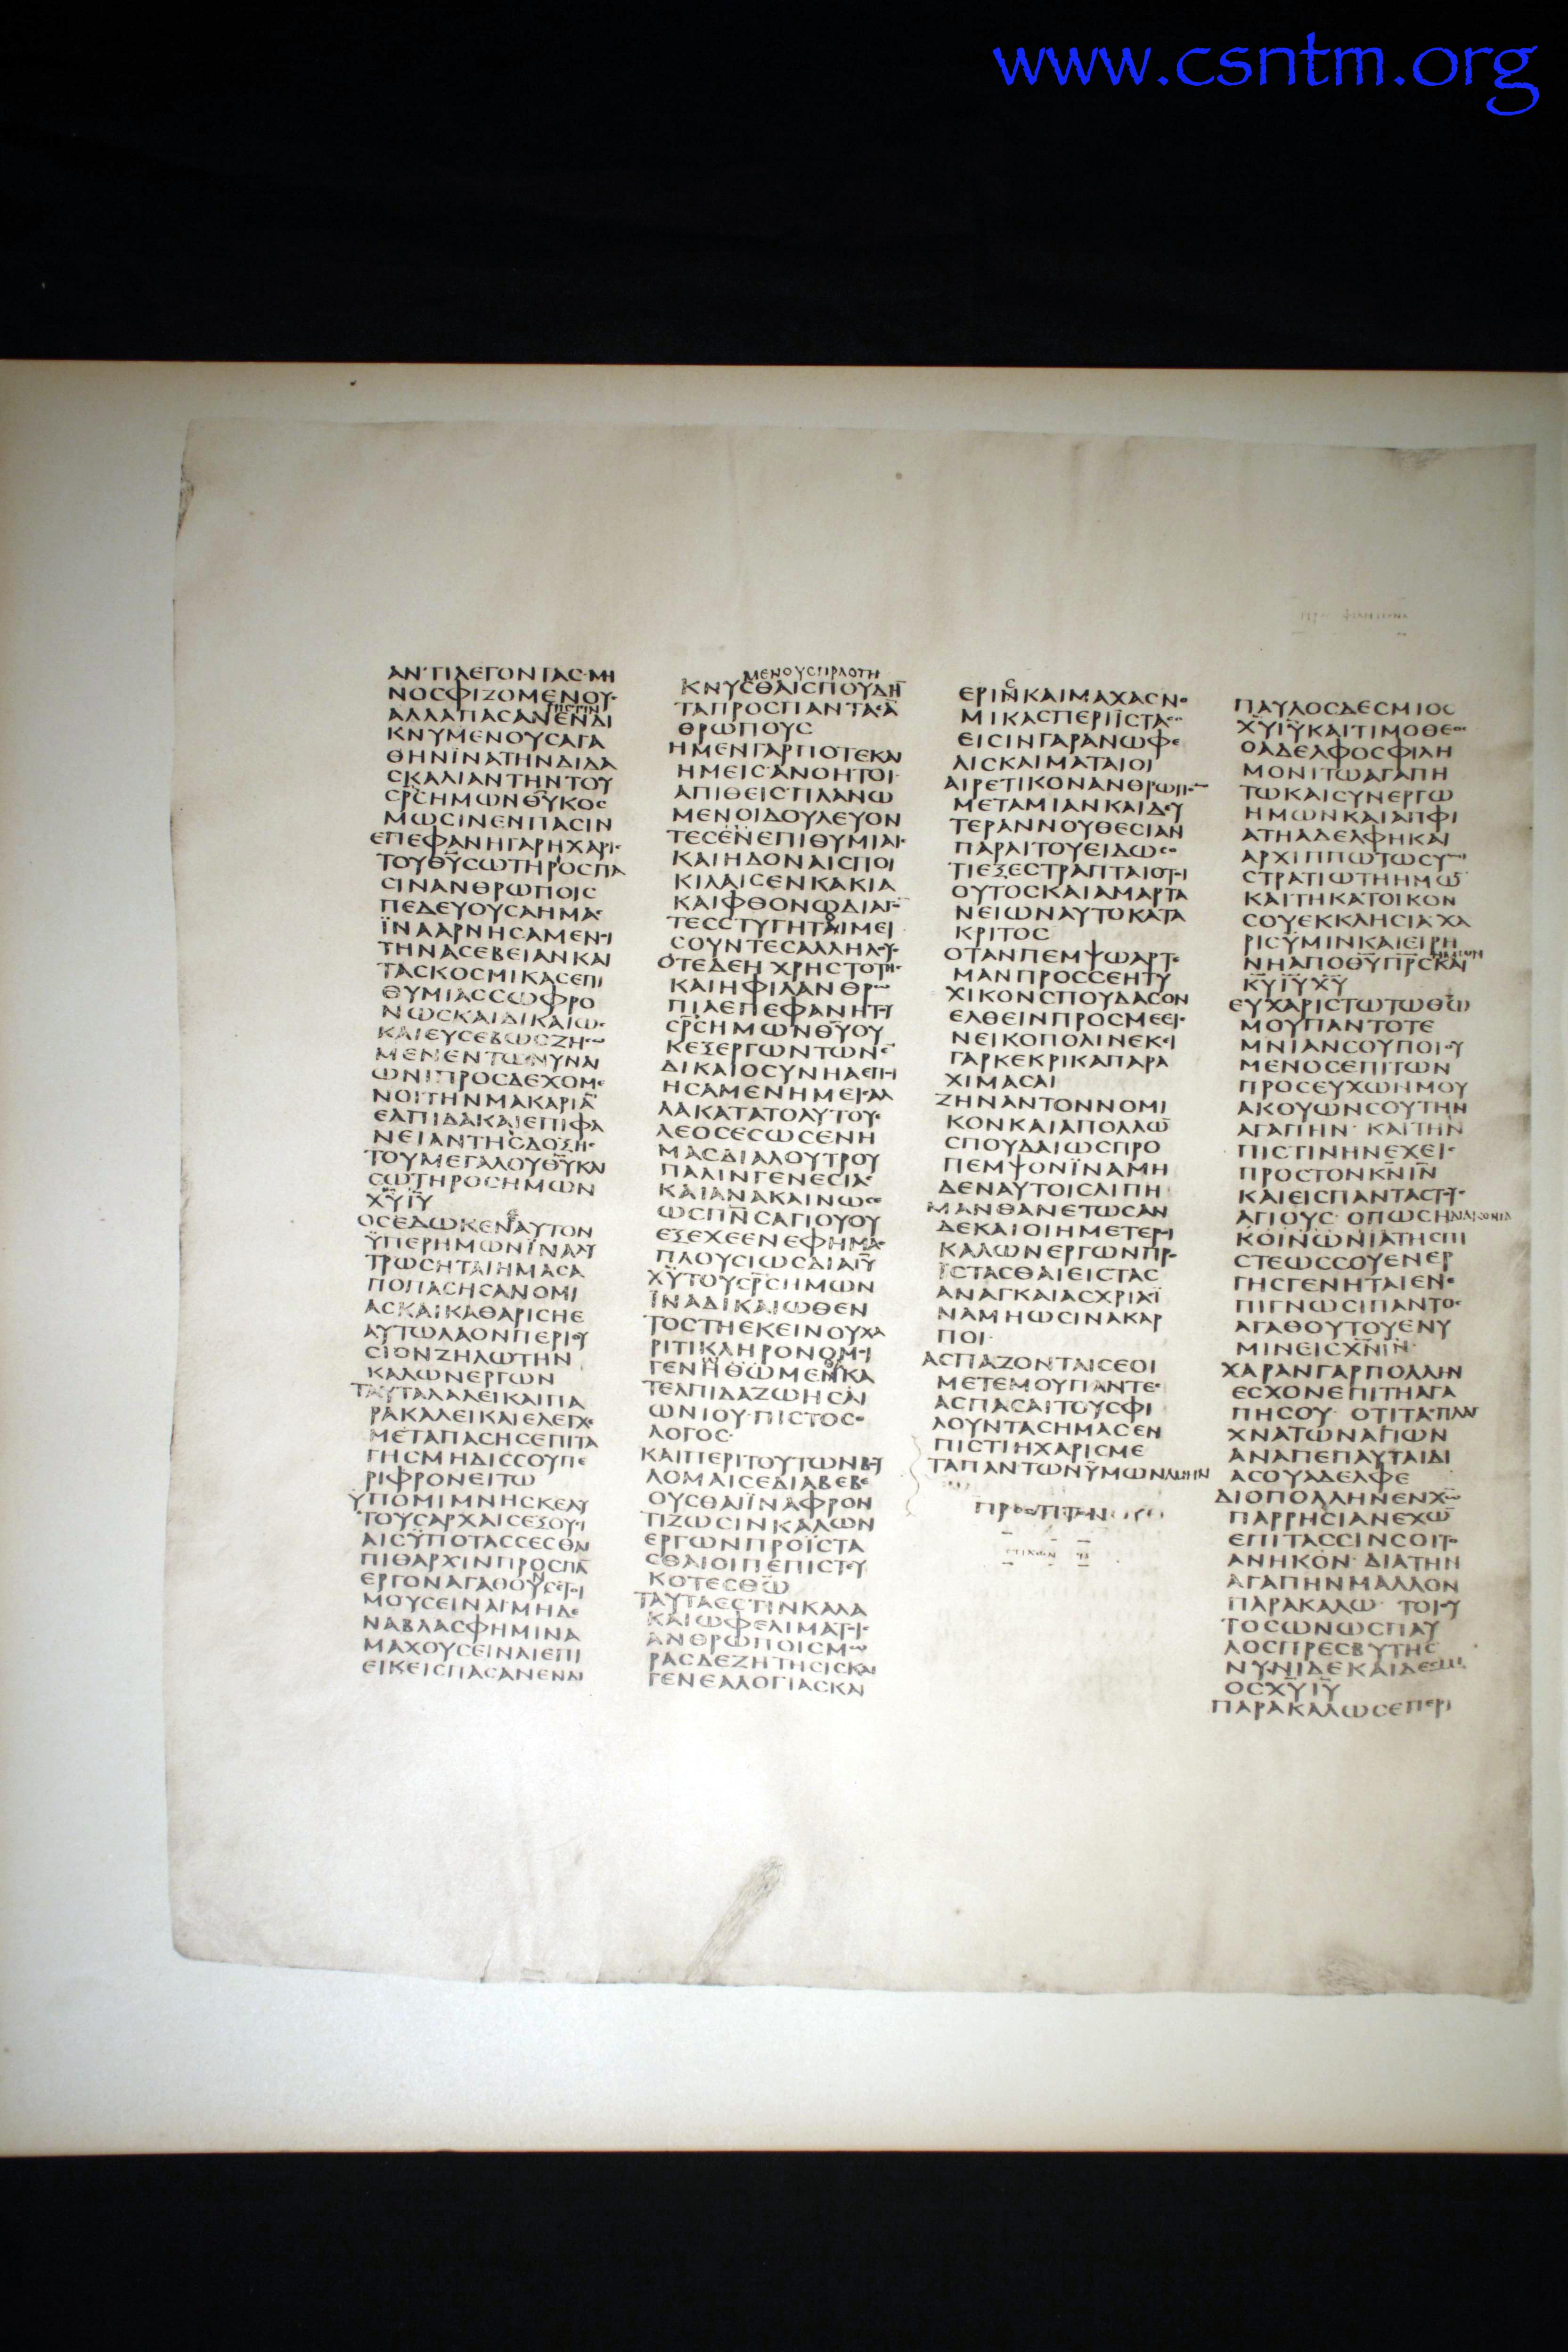 www.csntm.org
ΑΝΤΙΛΕΓΟΝΤΑϹ ΜΗ
ΝΟϹΦΙΖΟΜΕΝΟΥϹ
ΠΙϹΤΙΝ
ΑΛΛΑΠΑϹΑΝΕΝΔΙ
ΚΝΥΜΕΝΟΥϹΑΓΑ
ΘΗΝΪΝΑΤΗΝΔΙΔΑ
ϹΚΑΛΙΑΝΤΗΝΤΟΥ
ϹΡ̅ϹΗΜΩΝΘ̅Υ̅ΚΟϹ
ΜΩϹΙΝΕΝΠΑϹΙΝ
ΕΠΕΦΑΝΗΓΑΡΗΧΑΡΙϹ
ΤΟΥΘ̅Υ̅ϹΩΤΗΡΟϹΠΑ
ϹΙΝΑΝΘΡΩΠΟΙϹ
ΠΕΔΕΥΟΥϹΑΗΜΑϹ
ΪΝΑΑΡΝΗϹΑΜΕΝΟΙ
ΤΗΝΑϹΕΒΕΙΑΝΚΑΙ
ΤΑϹΚΟϹΜΙΚΑϹΕΠΙ
ΘΥΜΙΑϹϹΩΦΡΟ
ΝΩϹΚΑΙΔΙΚΑΙΩϹ
ΚΑΙΕΥϹΕΒΩϹΖΗϹΩ
ΜΕΝΕΝΤΩΝΥΝΑΙ
ΩΝΙΠΡΟϹΔΕΧΟΜΕ
ΝΟΙΤΗΝΜΑΚΑΡΙΑ̅
ΕΛΠΙΔΑΚΑΙΕΠΙΦΑ
ΝΕΙΑΝΤΗϹΔΟΞΗϹ
ΤΟΥΜΕΓΑΛΟΥΘ̅Υ̅ΚΑΙ
ϹΩΤΗΡΟϹΗΜΩΝ
Χ̅Υ̅Ι̅Υ̅
ΟϹΕΔΩΚΕΝΑΥΤΟΝ
ΫΠΕΡΗΜΩΝΪΝΑΛΥ
ΤΡΩϹΗΤΑΙΗΜΑϹΑ
ΠΟΠΑϹΗϹΑΝΟΜΙ
ΑϹΚΑΙΚΑΘΑΡΙϹΗΕ
ΑΥΤΩΛΑΟΝΠΕΡΙΟΥ
ϹΙΟΝΖΗΛΩΤΗΝ
ΚΑΛΩΝΕΡΓΩΝ
ΤΑΥΤΑΛΑΛΕΙΚΑΙΠΑ
ΡΑΚΑΛΕΙΚΑΙΕΛΕΓΧΕ
ΜΕΤΑΠΑϹΗϹΕΠΙΤΑ
ΓΗϹΜΗΔΙϹϹΟΥΠΕ
ΡΙΦΡΟΝΕΙΤΩ
ΥΠΟΜΙΜΝΗϹΚΕΑΥ
ΤΟΥϹΑΡΧΑΙϹΕΞΟΥϹΙ
ΑΙϹΫΠΟΤΑϹϹΕϹΘΑΙ
ΠΙΘΑΡΧΙΝΠΡΟϹΠΑ̅
ΕΡΓΟΝΑΓΑΘΟΥϹΕΤΟΙ
ΜΟΥϹΕΙΝΑΙΜΗΔΕ
ΝΑΒΛΑϹΦΗΜΙΝΑ
ΜΑΧΟΥϹΕΙΝΑΙΕΠΙ
ΕΙΚΕΙϹΠΑϹΑΝΕΝΔΙ
ΜΕΝΟΥϹΠΡΑΟΤΗ
ΚΝΥϹΘΑΙϹΠΟΥΔΗ̅
ΤΑΠΡΟϹΠΑΝΤΑϹΑ̅
ΘΡΩΠΟΥϹ
ΗΜΕΝΓΑΡΠΟΤΕΚΑΙ
ΗΜΕΙϹΑΝΟΗΤΟΙ
ΑΠΙΘΕΙϹΠΛΑΝΩ
ΜΕΝΟΙΔΟΥΛΕΥΟΝ
ΤΕϹΕΝΕΠΙΘΥΜΙΑΙϹ
ΚΑΙΗΔΟΝΑΙϹΠΟΙ
ΚΙΛΑΙϹΕΝΚΑΚΙΑ
ΚΑΙΦΘΟΝΩΔΙΑΓΟ̅
ΤΕϹϹΤΥΓΗΤΑΙΜΕΙ
ϹΟΥΝΤΕϹΑΛΛΗΛΟΥϹ
ΟΤΕΔΕΗΧΡΗϹΤΟΤΗϹ
ΚΑΙΗΦΙΛΑΝΘΡΩ
ΠΙΑΕΠΕΦΑΝΗΤΟΥ
ϹΡ̅ϹΗΜΩΝΘ̅Υ̅ΟΥ
ΚΕΞΕΡΓΩΝΤΩΝΕ̅
ΔΙΚΑΙΟϹΥΝΗΑΕΠΟΙ
ΗϹΑΜΕΝΗΜΕΙϹΑΛ
ΛΑΚΑΤΑΤΟΑΥΤΟΥΕ
ΛΕΟϹΕϹΩϹΕΝΗ
ΜΑϹΔΙΑΛΟΥΤΡΟΥ
ΠΑΛΙΝΓΕΝΕϹΙΑϹ
ΚΑΙΑΝΑΚΑΙΝΩϹΕ
ΩϹΠ̅Ν̅ϹΑΓΙΟΥΟΥ
ΕΞΕΧΕΕΝΕΦΗΜΑϹ
ΠΛΟΥϹΙΩϹΔΙΑΙ̅Υ̅
Χ̅Υ̅ΤΟΥϹΡ̅ϹΗΜΩΝ
ΪΝΑΔΙΚΑΙΩΘΕΝ
ΤΟϹΤΗΕΚΕΙΝΟΥΧΑ
ΡΙΤΙΚΛΗΡΟΝΟΜΟΙ
ΓΕΝΗΘΩΜΕΝΚΑ
ΤΕΛΠΙΔΑΖΩΗϹΑΙ
ΩΝΙΟΥ·ΠΙϹΤΟϹΟ
ΛΟΓΟϹ·
ΚΑΙΠΕΡΙΤΟΥΤΩΝΒΟΥ
ΛΟΜΑΙϹΕΔΙΑΒΕΒΕ
ΟΥϹΘΑΙΪΝΑΦΡΟΝ
ΤΙΖΩϹΙΝΚΑΛΩΝ
ΕΡΓΩΝΠΡΟΪϹΤΑ
ϹΘΑΙΟΙΠΕΠΙϹΤΕΥ
ΚΟΤΕϹΘ̅Ω̅
ΤΑΥΤΑΕϹΤΙΝΚΑΛΑ
ΚΑΙΩΦΕΛΙΜΑΤΟΙϹ
ΑΝΘΡΩΠΟΙϹΜΩ
ΡΑϹΔΕΖΗΤΗϹΙϹΚΑΙ
ΓΕΝΕΑΛΟΓΙΑϹΚΑΙ
ΕΡΙΝΚΑΙΜΑΧΑϹΝΟ
ΜΙΚΑϹΠΕΡΙΪϹΤΑϹΟ
ΕΙϹΙΝΓΑΡΑΝΩΦΕ
ΛΙϹΚΑΙΜΑΤΑΙΟΙ
ΑΙΡΕΤΙΚΟΝΑΝΘΡΩΠΟ̅
ΜΕΤΑΜΙΑΝΚΑΙΔΕΥ
ΤΕΡΑΝΝΟΥΘΕϹΙΑΝ
ΠΑΡΑΙΤΟΥΕΙΔΩϹΟ
ΤΙΕΞΕϹΤΡΑΠΤΑΙΟΤΟΙ
ΟΥΤΟϹΚΑΙΑΜΑΡΤΑ
ΝΕΙΩΝΑΥΤΟΚΑΤΑ
ΚΡΙΤΟϹ
ΟΤΑΝΠΕΜΨΩΑΡΤΕ
ΜΑΝΠΡΟϹϹΕΗΤΥ
ΧΙΚΟΝϹΠΟΥΔΑϹΟΝ
ΕΛΘΕΙΝΠΡΟϹΜΕΕΙϹ
ΝΕΙΚΟΠΟΛΙΝΕΚΕΙ
ΓΑΡΚΕΚΡΙΚΑΠΑΡΑ
ΧΙΜΑϹΑΙ
ΖΗΝΑΝΤΟΝΝΟΜΙ
ΚΟΝΚΑΙΑΠΟΛΛΩ̅
ϹΠΟΥΔΑΙΩϹΠΡΟ
ΠΕΜΨΟΝΪΝΑΜΗ
ΔΕΝΑΥΤΟΙϹΛΙΠΗ
ΜΑΝΘΑΝΕΤΩϹΑΝ
ΔΕΚΑΙΟΙΗΜΕΤΕΡΟΙ
ΚΑΛΩΝΕΡΓΩΝΠΡΟ
ΪϹΤΑϹΘΑΙΕΙϹΤΑϹ
ΑΝΑΓΚΑΙΑϹΧΡΙΑϹΪ
ΝΑΜΗΩϹΙΝΑΚΑΡ
ΠΟΙ·
ΑϹΠΑΖΟΝΤΑΙϹΕΟΙ
ΜΕΤΕΜΟΥΠΑΝΤΕϹ
ΑϹΠΑϹΑΙΤΟΥϹΦΙ
ΛΟΥΝΤΑϹΗΜΑϹΕΝ
ΠΙϹΤΙΗΧΑΡΙϹΜΕ
ΤΑΠΑΝΤΩΝΫΜΩΝΑΜΗΝ
ΠΡΟϹΤΙΤΟΝ
ϹΤΙΧΩΝ
ΠΑΥΛΟϹΔΕϹΜΙΟϹ
Χ̅Υ̅Ι̅Υ̅ΚΑΙΤΙΜΟΘΕΟϹ
ΟΑΔΕΛΦΟϹΦΙΛΗ
ΜΟΝΙΤΩΑΓΑΠΗ
ΤΩΚΑΙϹΥΝΕΡΓΩ
ΗΜΩΝΚΑΙΑΠΦΙ
ΑΤΗΑΔΕΛΦΗΚΑΙ
ΑΡΧΙΠΠΩΤΩϹΥ
ϹΤΡΑΤΙΩΤΗΗΜΩ̅
ΚΑΙΤΗΚΑΤΟΙΚΟΝ
ϹΟΥΕΚΚΛΗϹΙΑΧΑ
ΡΙϹΫΜΙΝΚΑΙΕΙΡΗ
ΝΗΑΠΟΘ̅Υ̅Π̅Ρ̅ϹΚΑΙ
Κ̅Υ̅Ι̅Υ̅Χ̅Υ̅
ΕΥΧΑΡΙϹΤΩΤΩΘ̅Ω̅
ΜΟΥΠΑΝΤΟΤΕ
ΜΝΙΑΝϹΟΥΠΟΙΟΥ
ΜΕΝΟϹΕΠΙΤΩΝ
ΠΡΟϹΕΥΧΩΝΜΟΥ
ΑΚΟΥΩΝϹΟΥΤΗΝ
ΑΓΑΠΗΝ·ΚΑΙΤΗΝ
ΠΙϹΤΙΝΗΝΕΧΕΙϹ
ΠΡΟϹΤΟΝΚ̅Ν̅Ι̅Ν̅
ΚΑΙΕΙϹΠΑΝΤΑϹΤΟΥϹ
ΑΓΙΟΥϹ·ΟΠΩϹΗ
ΚΟΙΝΩΝΙΑΤΗϹΠΙ
ϹΤΕΩϹϹΟΥΕΝΕΡ
ΓΗϹΓΕΝΗΤΑΙΕΝΕ
ΠΙΓΝΩϹΙΠΑΝΤΟϹ
ΑΓΑΘΟΥΤΟΥΕΝΥ
ΜΙΝΕΙϹΧ̅Ν̅Ι̅Ν̅
ΧΑΡΑΝΓΑΡΠΟΛΛΗΝ
ΕϹΧΟΝΕΠΙΤΗΑΓΑ
ΠΗϹΟΥ·ΟΤΙΤΑϹΠΛΑΓ
ΧΝΑΤΩΝΑΓΙΩΝ
ΑΝΑΠΕΠΑΥΤΑΙΔΙ
ΑϹΟΥΑΔΕΛΦΕ
ΔΙΟΠΟΛΛΗΝΕΝΧ̅Ω̅
ΠΑΡΡΗϹΙΑΝΕΧΩ̅
ΕΠΙΤΑϹϹΙΝϹΟΙΤΟ
ΑΝΗΚΟΝ·ΔΙΑΤΗΝ
ΑΓΑΠΗΝΜΑΛΛΟΝ
ΠΑΡΑΚΑΛΩ·ΤΟΙΟΥ
ΤΟϹΩΝΩϹΠΑΥ
ΛΟϹΠΡΕϹΒΥΤΗϹ
ΝΥΝΙΔΕΚΑΙΔΕϹΜΙ
ΟϹΧ̅Υ̅Ι̅Υ̅
ΠΑΡΑΚΑΛΩϹΕΠΕΡΙ